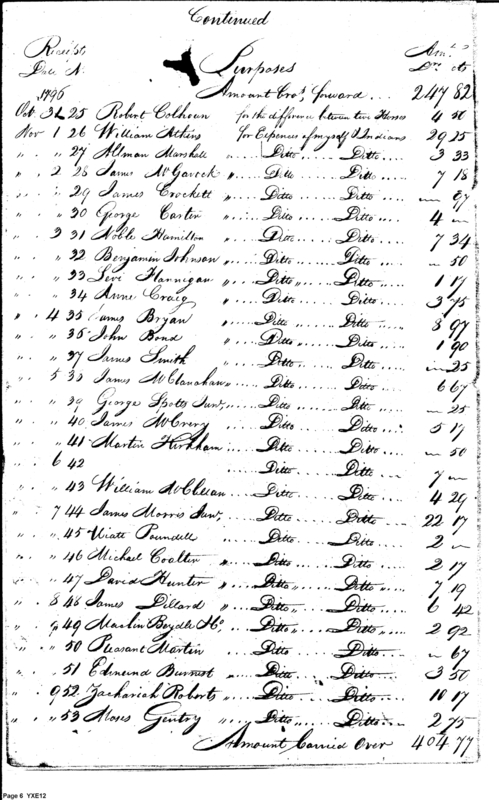 Continued
Receipts Amt.
Date No. Purposes Drs cts
1796 Amount Brot. forward ... 247 82
Oct. 31 25 Robert Colhoun for the difference between two Horses 4 50
Nov 1 26 William Atkins for Expences of myself & Indians 29 25
" " " 27 Altman Marshall " Ditto Ditto 3 33
" " 2 28 James McGavock " Ditto Ditto 7 18
" " " 29 James Crockett " Ditto Ditto — 67
" " " 30 George Carter " Ditto Ditto 4 —
" " 3 31 Noble Hamilton " Ditto Ditto 7 34
" " " 32 Benjamin Johnson " Ditto Ditto — 50
" " " 33 Levi Hannigan " Ditto Ditto 1 17
" " " 34 Anne Craig " Ditto Ditto 3 75
" " 4 35 James Bryan " Ditto Ditto 8 97
" " " 36 John Bond " Ditto Ditto 1 90
" " " 37 James Smith " Ditto Ditto — 25
" " 5 38 James McClanahan " Ditto Ditto 6 67
" " " 39 George Spotts Junr, " Ditto Ditto — 25
" " " 40 James McCrery " Ditto Ditto 5 17
" " " 41 Martin Kirkham " Ditto Ditto — 50
" " 6 42 Ditto Ditto 7 —
" " " 43 William McClellan Ditto Ditto 4 29
" " 7 44 James Morris Junr, Ditto Ditto 22 17
" " " 45 Wiatt Poundell Ditto Ditto 2 —
" " " 46 Michael Coalter " Ditto Ditto 2 17
" " " 47 David Hunter " Ditto Ditto 7 19
" " 8 48 James Dillard " Ditto Ditto 6 42
" " 9 49 Martin Ditto Ditto 2 92
" " " 50 Pleasant Martin Ditto Ditto — 67
" " " 51 Edmund Ditto Ditto 3 50
" " 9 52 Zachariah Roberts " Ditto Ditto 10 17
" " " 53 Moses Gentry " Ditto Ditto 2 75
Amount Carried Over 404 77
Page 6 YXE12